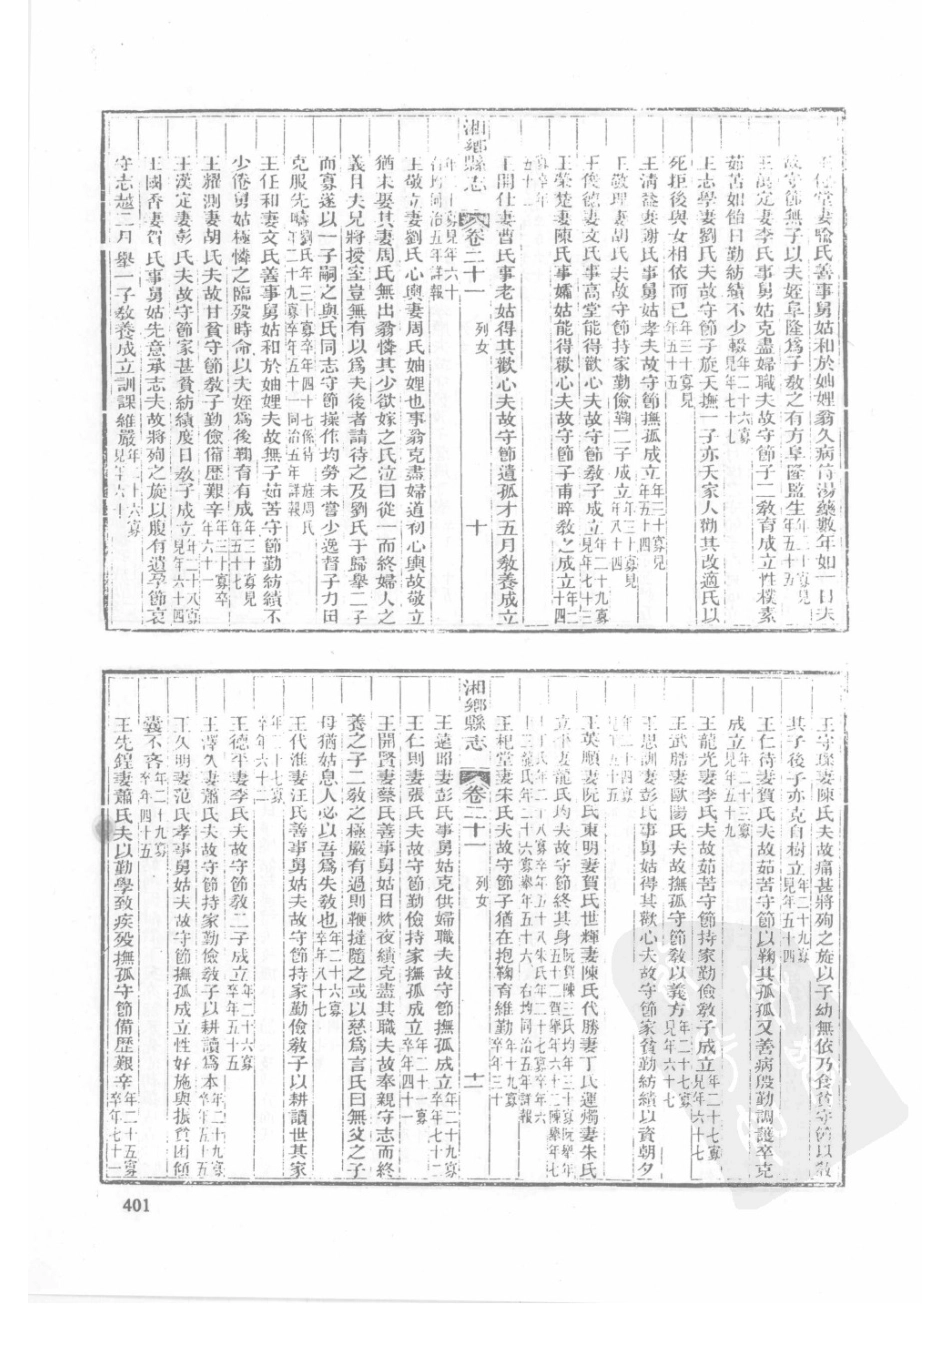 堂妻喻氏善事舅姑和於妯娌翁久病侍湯藥數年如一日夫
故守節無子以夫姪阜隆爲子教之有方阜隆監生
定妻李氏事舅姑克盡婦職夫故守節子二教育成立性樸素
茹苦如飴日勤紡績不少輟年二十六寡見年七十七
王志學妻劉氏夫故守節子旋夭撫一子亦夭家人勸其改適氏以
死拒後與女相依而已年三十寡見年五十五
王清 妻謝氏事舅姑孝夫故守節撫孤成立年三十寡見年五十四
王敬理妻胡氏夫故守節持家勤儉鞠二子成立年三十寡見年八十四
王俊德妻文氏事高堂能得歡心夫故守節教子成立年二十九寡見年七十三
王榮楚妻陳氏事孀姑能得歡心夫故守節子甫晬教之成立
王開仕妻曹氏事老姑得其歡心夫故守節遺孤才五月教養成立
湘鄉縣志 卷二十一 列女 十
年三十寡見年六十 右均同治五年詳報
王敬立妻劉氏心輿妻周氏妯娌也事翁克盡婦道初心輿故敬立
猶未娶其妻周氏無出翁憐其少欲嫁之氏泣曰從一而終婦人之
義曰夫兄將授室豈無有以爲夫後者請待之及劉氏于歸舉二子
而寡遂以一子嗣之與氏同志守節操作均勞未嘗少逸督子力田
克服先疇劉氏年三十寡卒年四十七係待旌周氏年二十九寡卒年五十一同治五年詳報
王任和妻文氏善事舅姑和於妯娌夫故無子茹苦守節勤紡績不
少倦舅姑極憐之臨歿時命以夫姪爲後鞠育有成年三十寡見年五十七
王耀測妻胡氏夫故甘貧守節教子勤儉備歷艱辛年三十寡卒年六十一
王漢定妻彭氏夫故守節家甚貧紡績度日教子成立年二十八寡見年六十四
王國香妻賀氏事舅姑先意承志夫故將殉之旋以腹有遺孕節哀
守志越二月舉一子教養成立訓課維嚴年二十六寡見年六十
王守 妻陳氏夫故痛甚將殉之旋以子幼無依乃食貧守節以
其子後子亦克自樹立年二十九寡見年五十四
王仁待妻賀氏夫故茹苦守節以鞠其孤孤又善病殷勤調護卒克
成立年二十三寡見年五十九
王龍光妻李氏夫故茹苦守節持家勤儉教子成立年二十七寡見年六十七
王武 妻歐陽氏夫故撫孤守節教以義方年二十七寡見年六十七
王思訓妻彭氏事舅姑得其歡心夫故守節家貧勤紡績以資朝夕
年二十四寡見年五十五
王英順妻阮氏東明妻賀氏世輝妻陳氏代勝妻丁氏運燭妻朱氏
立平妻龍氏均夫故守節終其身
王杞堂妻宋氏夫故守節子猶在抱鞠育維勤年十九寡卒年三十
湘鄉縣志 卷二十一 列女 十一
王遠昭妻彭氏事舅姑克供婦職夫故守節撫孤成立年二十九寡卒年七十二
王仁則妻張氏夫故守節勤儉持家撫孤成立年二十一寡卒年四十一
王開賢妻蔡氏善事舅姑日炊夜績克盡其職夫故奉親守志而終
養之子二教之極嚴有過則鞭撻隨之或以慈爲言氏曰無父之子
母猶姑息人必以吾爲失教也年二十六寡卒年八十七
王代淮妻汪氏善事舅姑夫故守節持家勤儉教子以耕讀世其家
年二十七寡卒年六十二
王德平妻李氏夫故守節教二子成立年二十六寡卒年五十五
王澤久妻蕭氏夫故守節持家勤儉教子以耕讀爲本年二十九寡卒年五十五
王久明妻范氏孝事舅姑夫故守節撫孤成立性好施與振貧困傾
囊不吝年二十九寡卒年四十五
王先鍠妻蕭氏夫以勤學致疾歿撫孤守節備歷艱辛年二十五寡卒年七十一
401